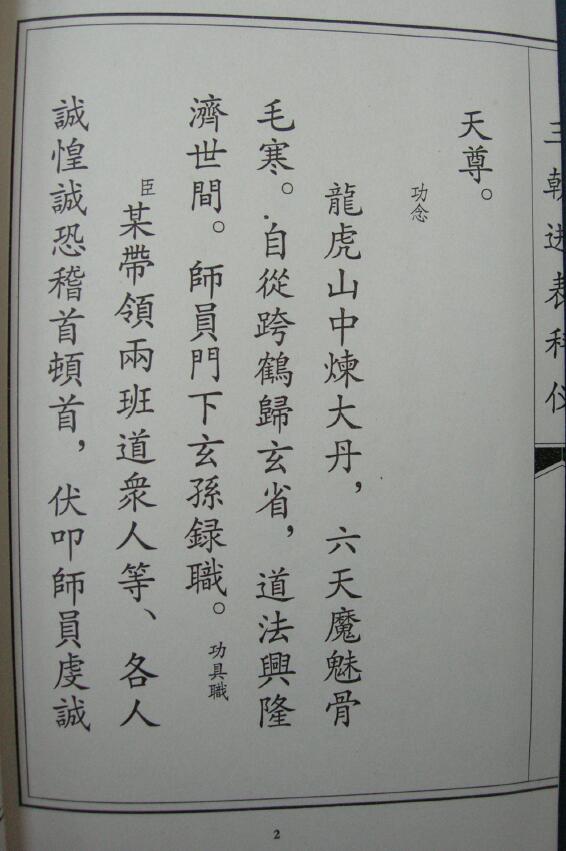 三朝进表科仪
天尊。
功念
龍虎山中煉大丹，六天魔魅骨
毛寒。自從跨鶴歸玄省，道法興隆
濟世間。師員門下玄孫録職。功具職
臣某帶領兩班道衆人等、各人
誠惶誠恐稽首頓首，伏叩師員虔誠
2